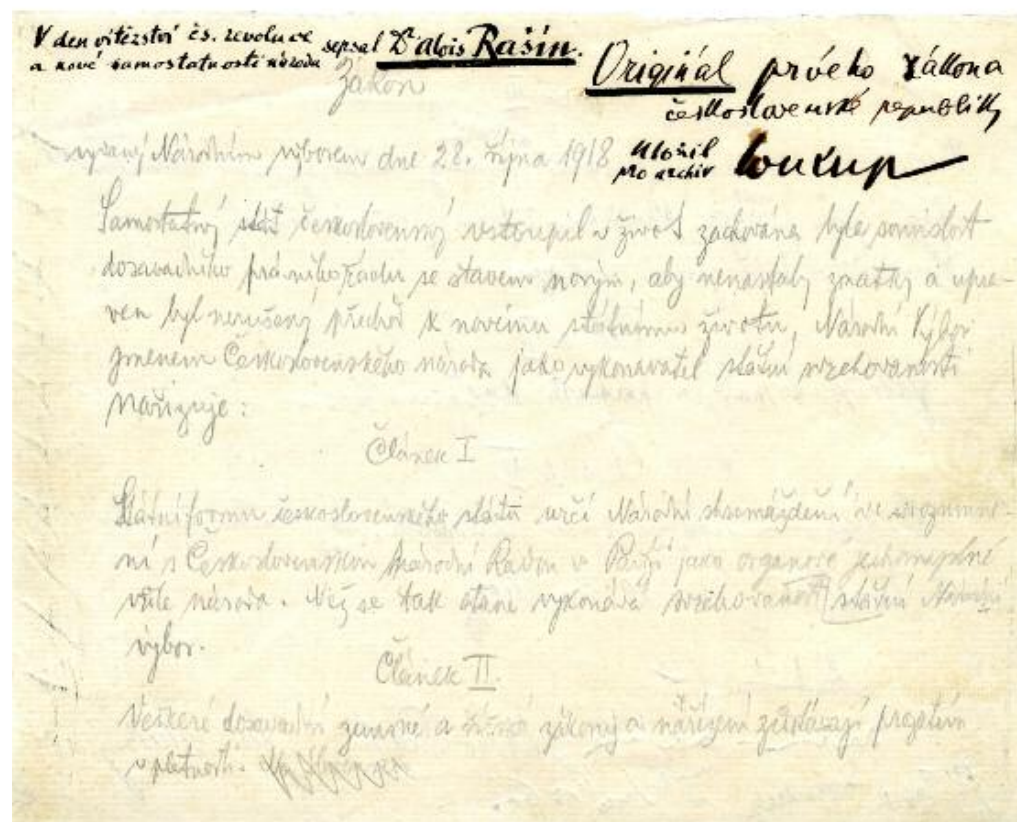 V den vítězství čs. revoluce sepsal Dr Alois Rašín.
a nové samostatnosti národa
Originál prvého zákona
československé republiky
Uložil
pro archiv Soukup
Zákon
vydaný Národním výborem dne 28. října 1918
Samostatný stát československý vstoupil v život zachována byla souvislost
dosavadního právního řádu se stavem novým, aby nenastaly zmatky a upra-
ven byl nerušený přechod k novému státnímu životu, Národní Výbor
jmenem Československého národa jako vykonavatel státní svrchovanosti
nařizuje:
Článek I
Státní formu československého státu určí Národní shromáždění ve srozumě-
ní s Československou Národní Radou v Paříži jako orgánové jednomyslné
vůle národa. Než se tak stane vykonává svrchovanost státní Národní
výbor.
Článek II.
Veškeré dosavadní zemské a říšské zákony a nařízení zůstávají prozatím
v platnosti.